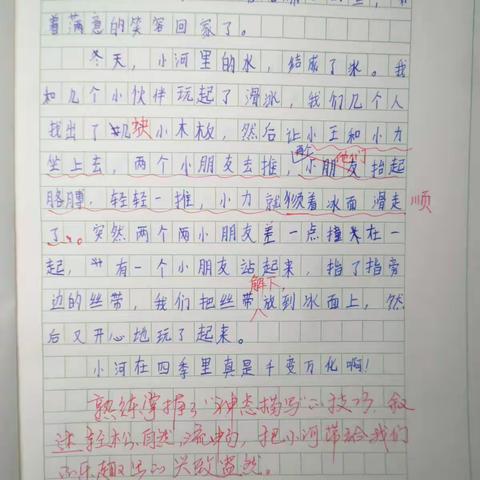 着满意的笑容回家了。
冬天，小河里的水，结成了冰。我
和几个小伙伴玩起了滑冰，我们几个人
找出了几块小木板，然后让小王和小力
坐上去，两个小朋友去推，小朋友他们抬起
胳膊，轻轻一推，小力就顺着冰面滑走 顺
了。突然两个两小朋友差一点撞在一
起，有一个小朋友站起来，指了指旁
边的丝带，我们把丝带解下，放到冰面上，然
后又开心地玩了起来。
小河在四季里真是千变万化啊！
熟练掌握了“神态描写”的技巧，叙
述轻松、自然、流畅，把小河带给我们
的乐趣写的兴致盎然。